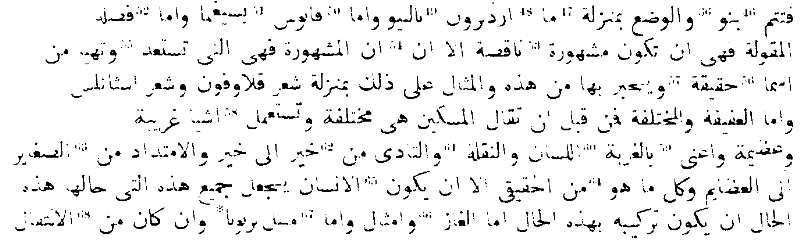 فتتم 46 بنو 56 والوضع بمنزلة 47 ما 48 ارذبرون 49 باليو واما 50 فانوس 51 يسيغما واما 52 فصلد
المقولة فهى ان تكون مشهورة 53 ناقصة الا ان 54 ان المشهورة فهى التى تستعد 55 وتهيد من
اسما 56 حقيقة 57 ويتحبر بها من هذه والمثال على ذلك بمنزلة شعر قلاوفون وشعر استانلس
واما العفيفة والمختلفة فمن قبل ان تقال المسكين هى مختلفة وتستعمل 58 اشيا غريبة
وعظيمة واعنى 59 بالغربة 60 اللسان والنقلة 61 والتادى من 62 خير الى خير والامتداد من 63 الصغاير
الى العظايم وكل ما هو 64 من الحقيقى الا ان يكون 65 الانسان يجعل جميع هذه التى حالها هذه
الحال ان يكون تركيبه بهذه الحال اما الغاز 66 وامثال واما 67 وان كان من 68 الانتقال